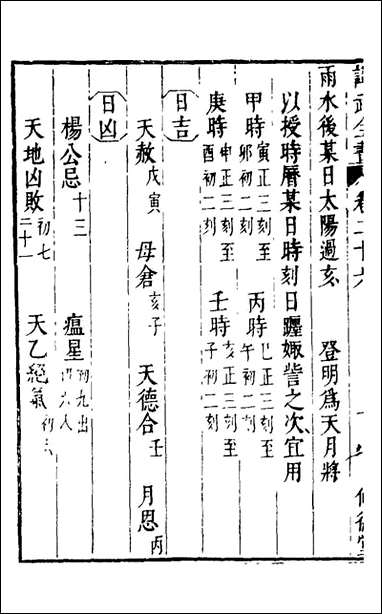 武全書 卷二十六
雨水後某日太陽過亥 登明爲天月將
以授時曆某日時刻日躔娵訾之次宜用
甲時寅正三刻至卯初二刻 丙時巳正三刻至午初二刻
庚時申正三刻至酉初二刻 壬時亥正三刻至子初二刻
日吉
天赦戊寅 母倉亥子 天德合壬 月恩丙
日凶
楊公忌十三 瘟星初九出
天地凶敗初七二十一 天乙絕氣初六